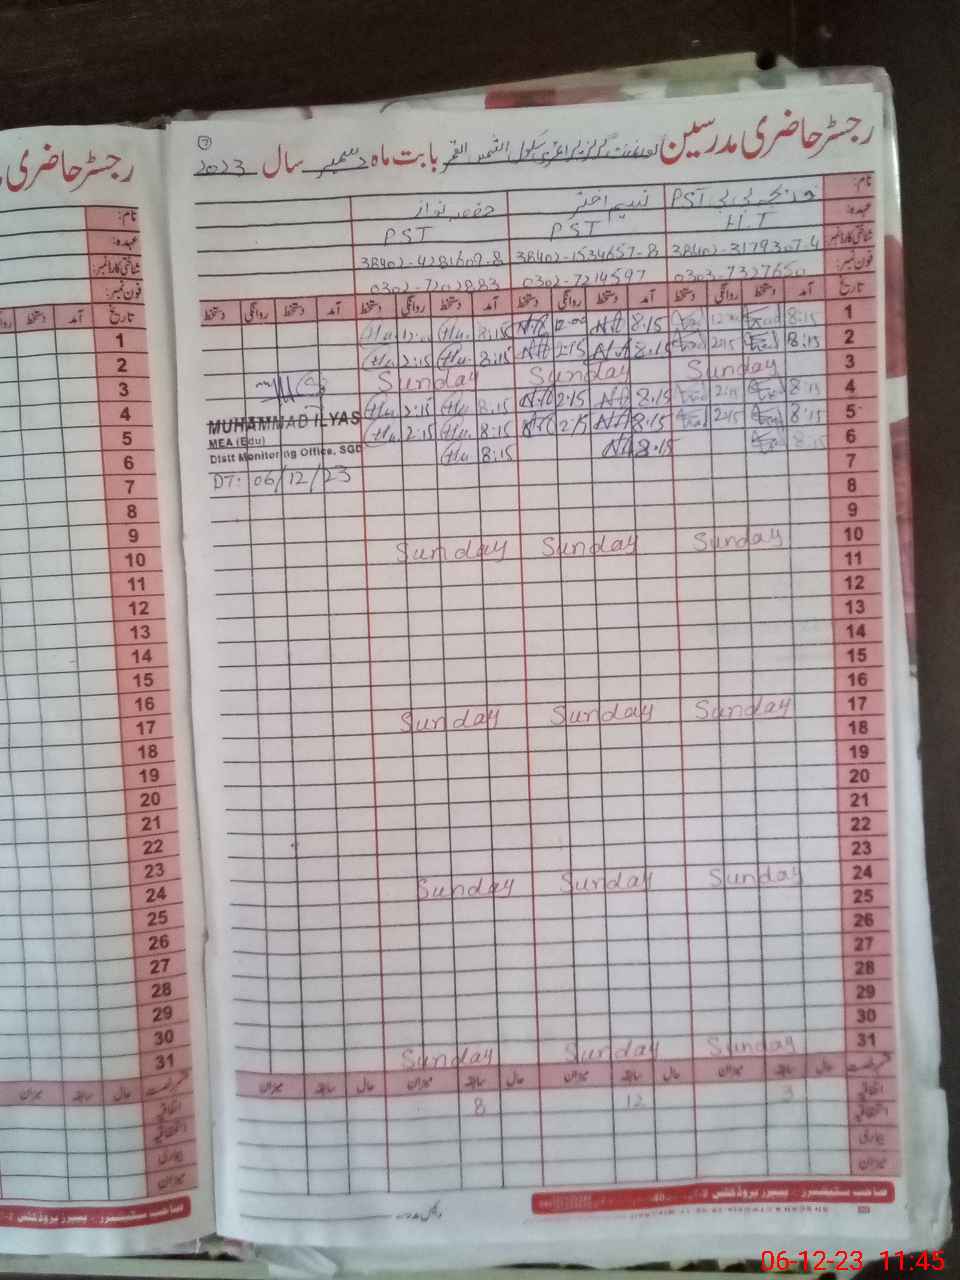 رجسٹر حاضری مدرسین گورنمنٹ گرلز پرائمری سکول الشمس القمر بابت ماہ دسمبر سال 2023
نام: خدیجہ بی بی PST نسیم اختر حفصہ نواز
عہدہ: H.T PST PST
شناختی کارڈ نمبر: 38402-3179307-4 38402-1534657-8 38402-4281609-8
فون نمبر: 0303-7327650 0302-7214597 0302-7202883
تاریخ آمد دستخط روانگی دستخط آمد دستخط روانگی دستخط آمد دستخط روانگی دستخط آمد دستخط روانگی دستخط
1 8:15 12:00 8.15 12:00 8:15 12:00
2 8:15 2:15 8.15 2:15 8:15 2:15
3 Sunday Sunday Sunday
4 8:15 2:15 8.15 2:15 8:15 2:15
5 8:15 2:15 8.15 2:15 8:15 2:15
6 8:15 8.15 8:15
MUHAMMAD ILYAS
MEA (Edu)
Distt Monitoring Office, SGD
DT: 06/12/23
7
8
9
10 Sunday Sunday Sunday
11
12
13
14
15
16
17 Sunday Sunday Sunday
18
19
20
21
22
23
24 Sunday Sunday Sunday
25
26
27
28
29
30
31 Sunday Sunday Sunday
حال سابقہ میزان حال سابقہ میزان حال سابقہ میزان حال سابقہ میزان
اتفاقیہ 3 12 8
بیماری
میزان
صاحب سٹیشنرز پیپرز پروڈکٹس
رجسٹر حاضری
نام:
عہدہ:
شناختی کارڈ نمبر:
فون نمبر:
تاریخ آمد دستخط
1
2
3
4
5
6
7
8
9
10
11
12
13
14
15
16
17
18
19
20
21
22
23
24
25
26
27
28
29
30
31
حال سابقہ میزان
اتفاقیہ
بیماری
میزان
صاحب سٹیشنرز پیپرز پروڈکٹس
06-12-23 11:45